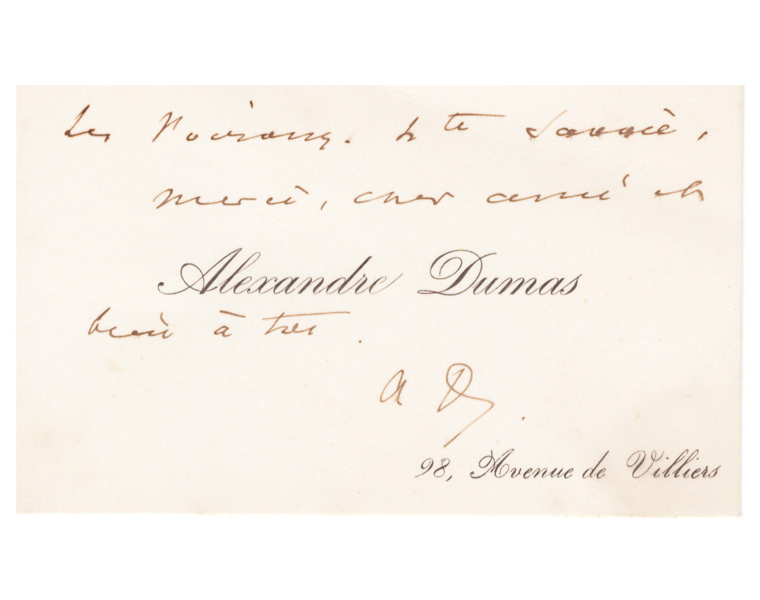 Les Voirons. Hte Savoie,
Merci, cher ami et
Alexandre Dumas
bien à toi.
A D
98, Avenue de Villiers